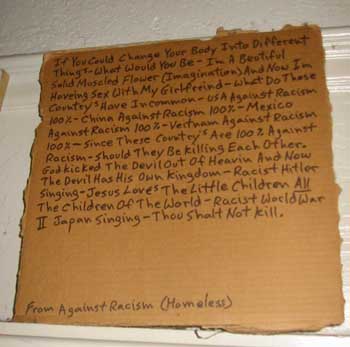 If You Could Change Your Body Into Different
Things-What Would You Be-I'm A Beutiful
Solid Muscled Flower (Imagination) And Now Im
Haveing Sex With My Girlfreind-What Do These
Country's Have In common-USA Against Racism
100%-China Against Racism 100%-Mexico
Against Racism 100%-Veitnam Against Racism
100%-Since These Country's Are 100% Against
Racism-should They Be Killing Each Other.
God kicked The Devil Out Of Heavin And Now
The Devil Has His Own Kingdom-Racist Hitler
Singing-Jesus Loves The Little Children All
The Children Of The World-Racist World War
II Japan Singing-Thou Shalt Not Kill.
From Against Racism (Homeless)